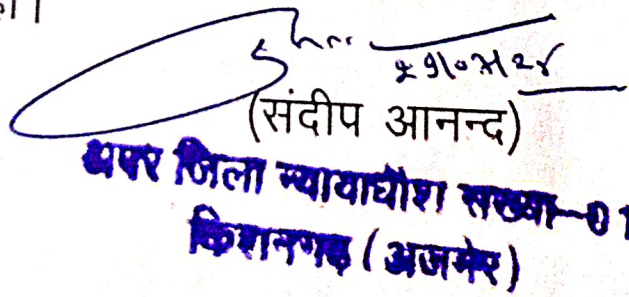 (संदीप आनन्द)
अपर जिला न्यायाधीश संख्या-01
किशनगढ़ (अजमेर)